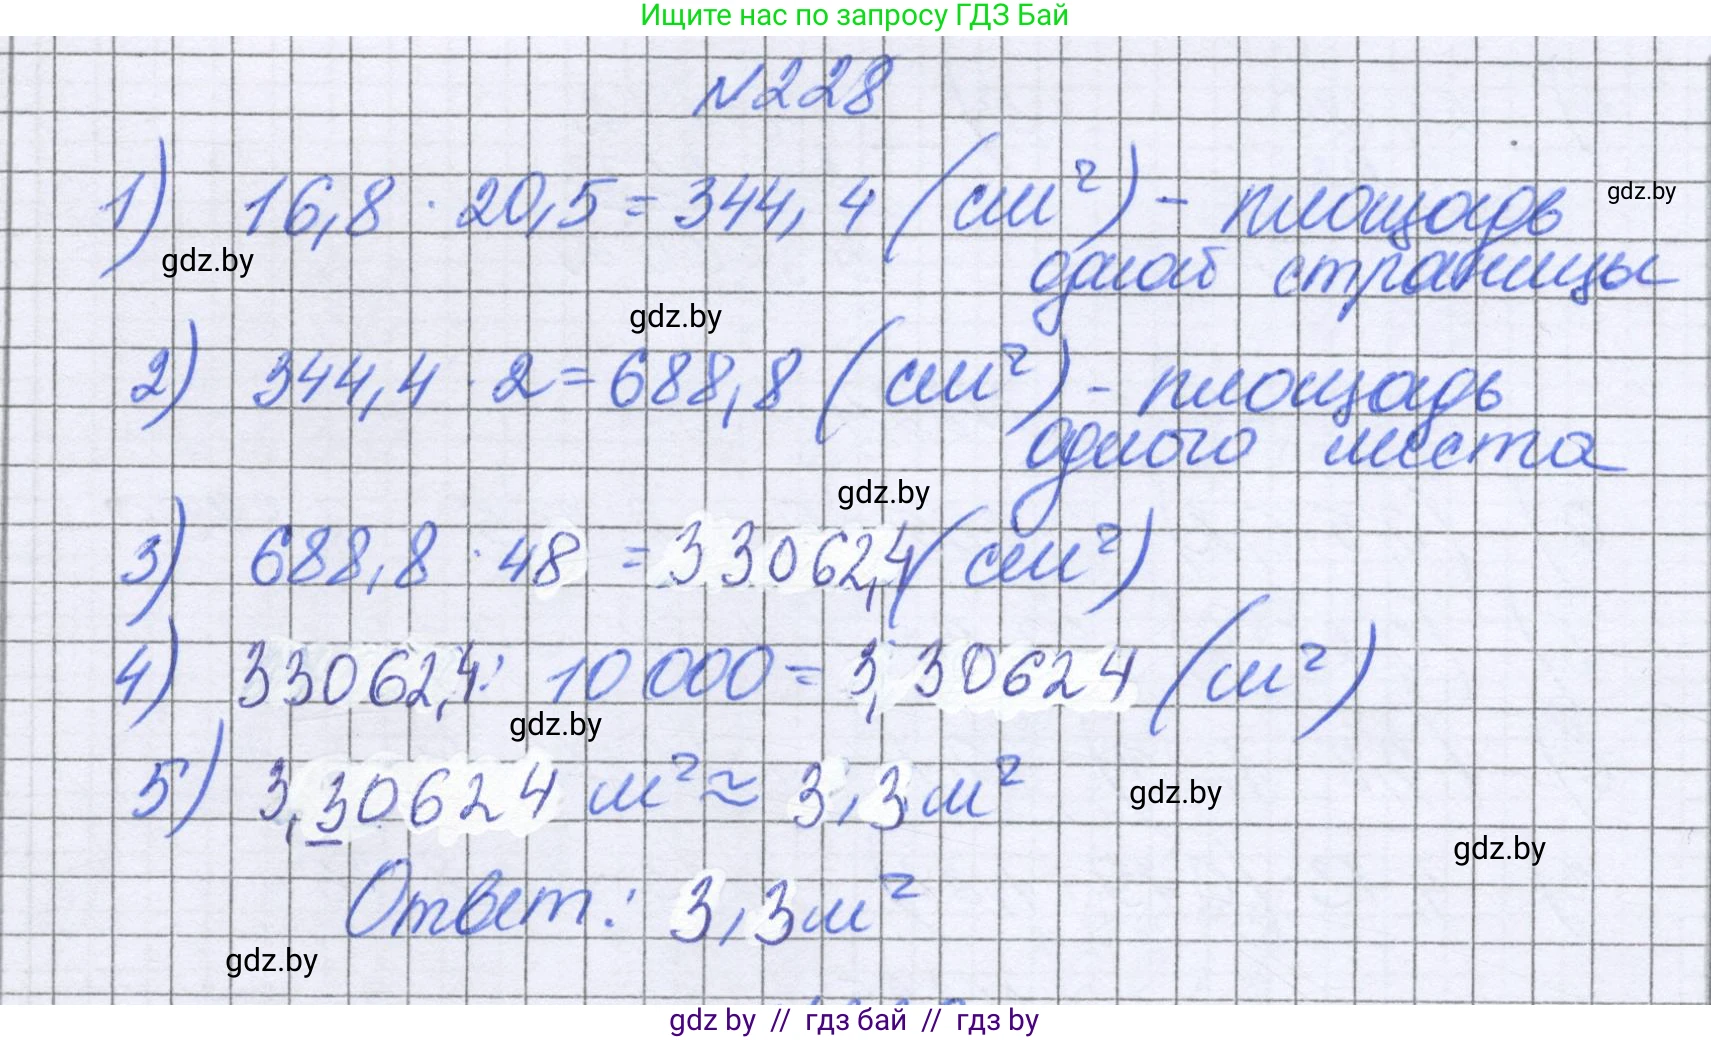 Ищите нас по запросу ГДЗ Бай
№228
1) 16,8 · 20,5 = 344,4 (см²) - площадь
gdz.by
одной страницы
gdz.by
gdz.by
2) 344,4 · 2 = 688,8 (см²) - площадь
одного листа
gdz.by
3) 688,8 · 48 = 33062,4 (см²)
4) 33062,4 : 10 000 = 3,30624 (м²)
gdz.by
5) 3,30624 м² ≈ 3,3 м²
gdz.by
gdz.by
Ответ: 3,3 м²
gdz.by
gdz by // гдз бай // гдз by